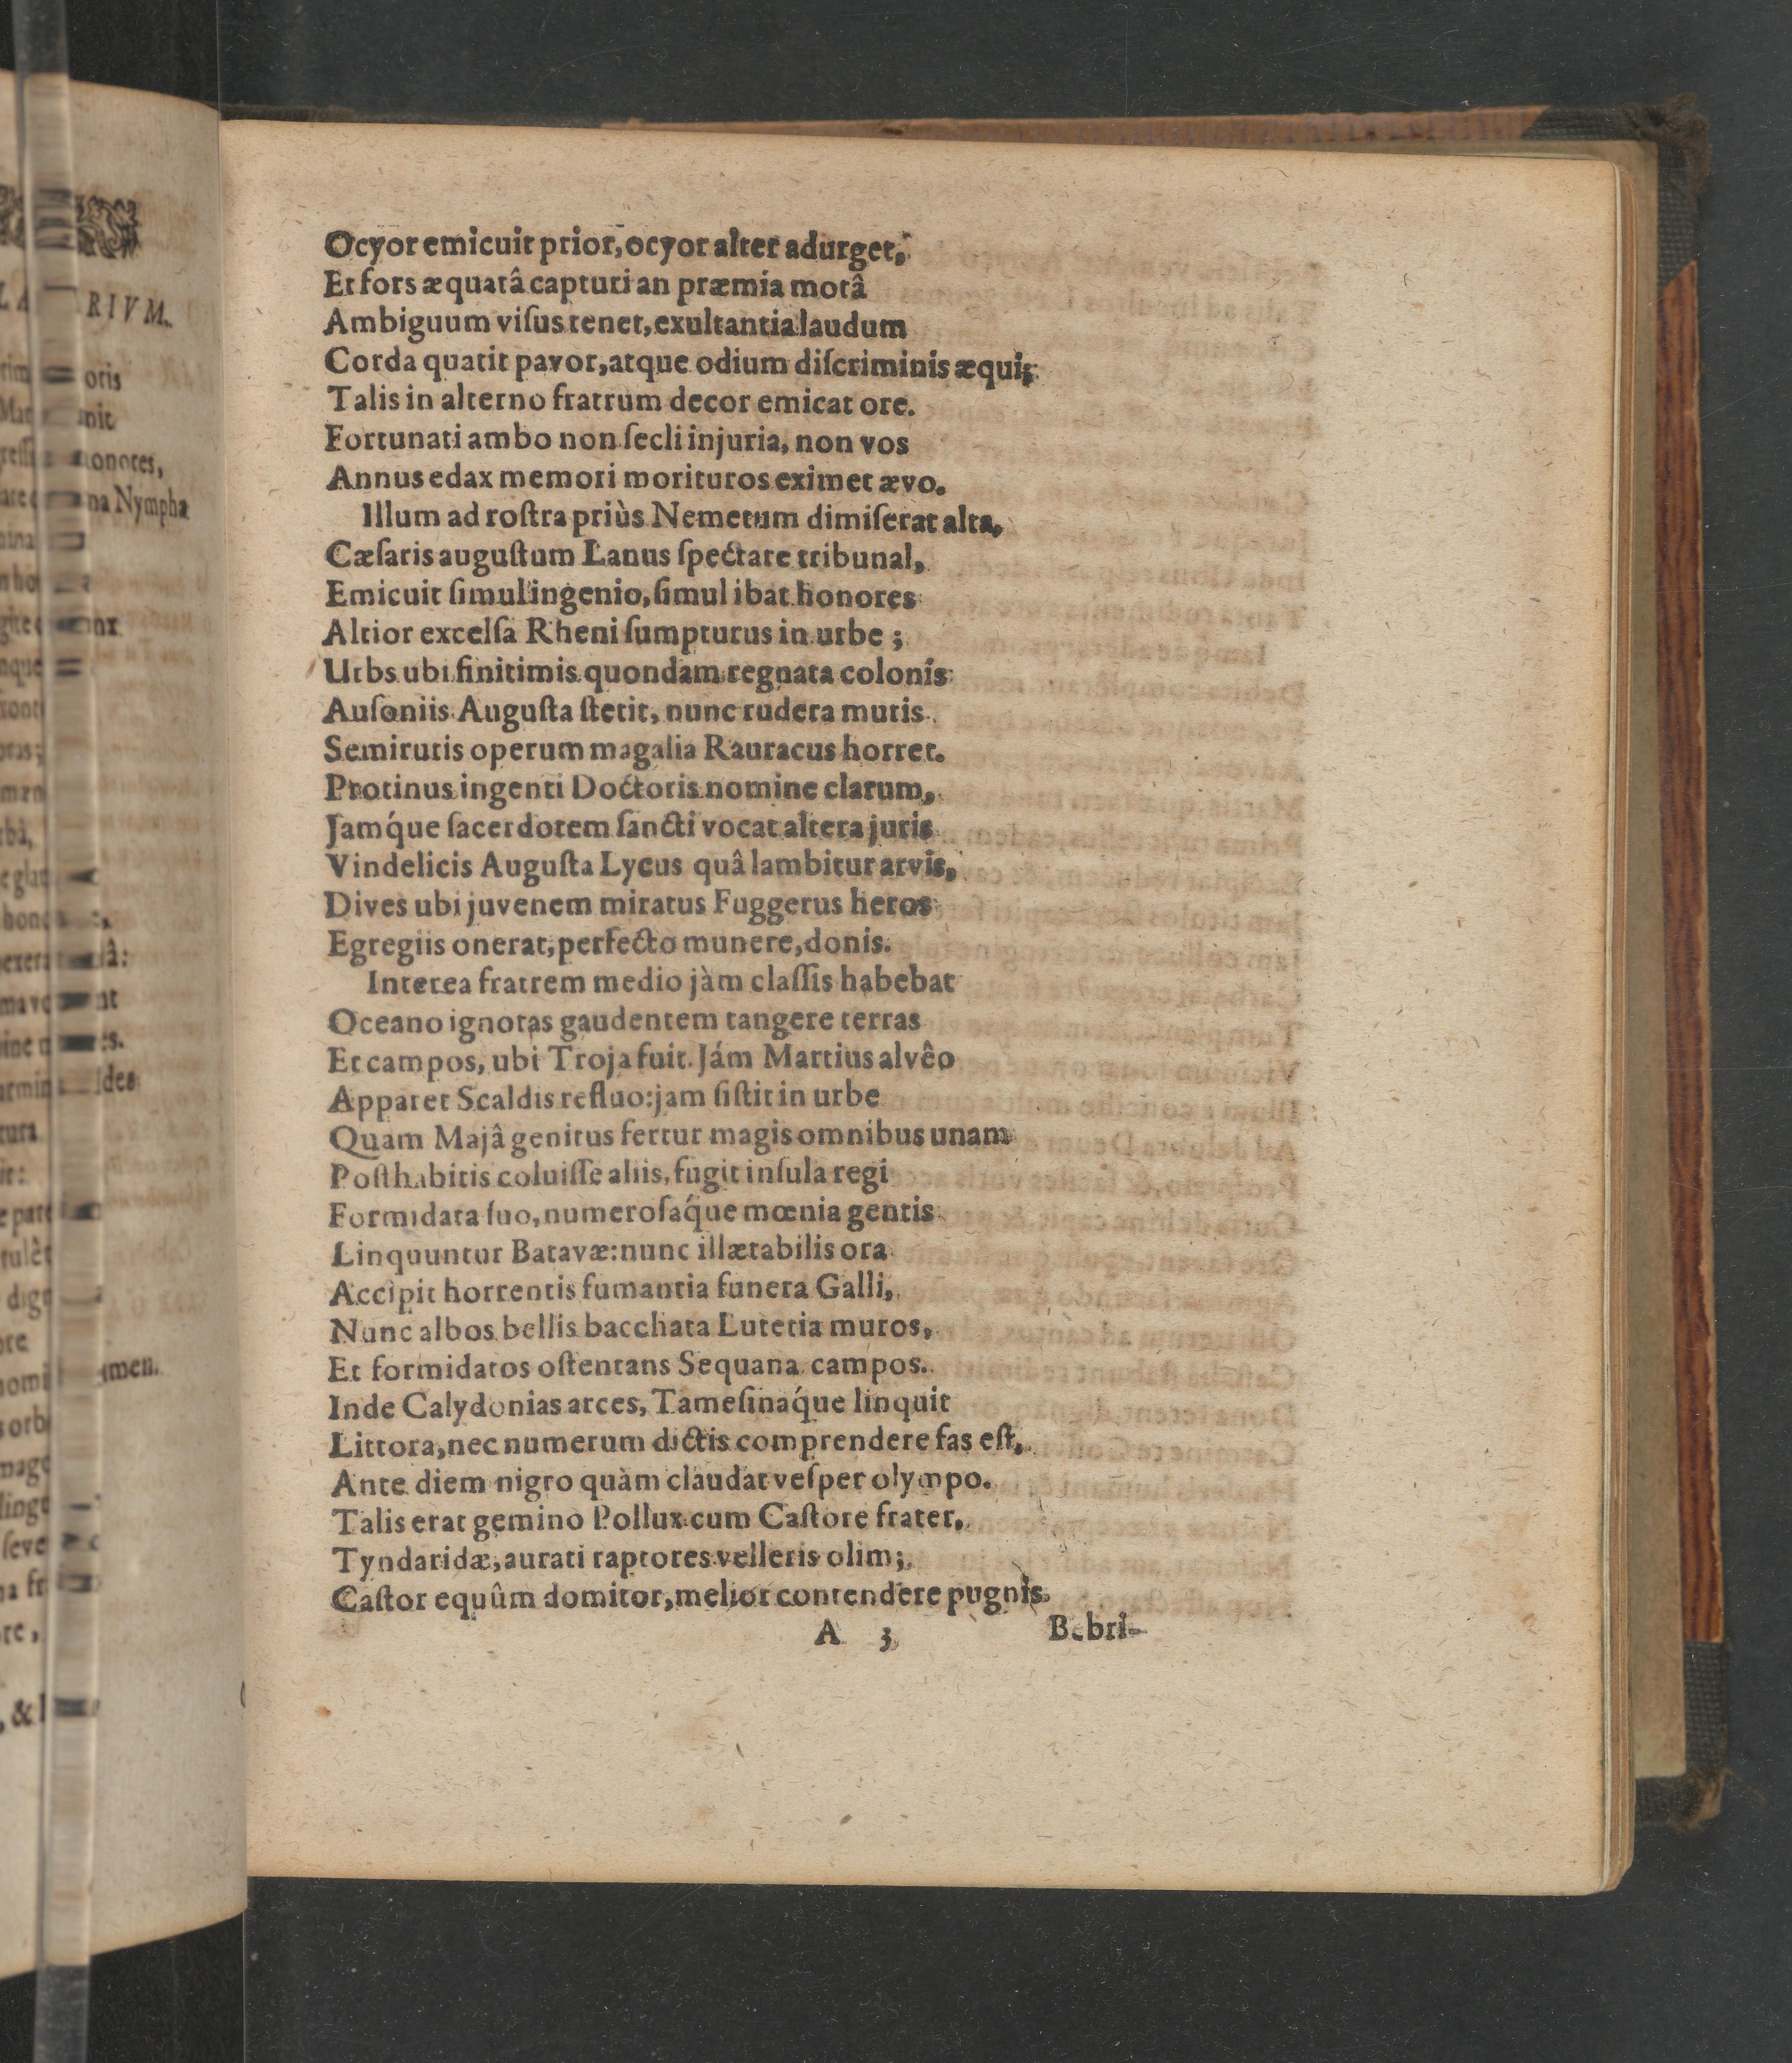 Ocyor emicuit prior, ocyor alter adurget,
Et fors æquatâ capturi an præmia motâ
Ambiguum viſus tenet, exultantia laudum
Corda quatit pavor, atque odium diſcriminis æqui;
Talis in alterno fratrum decor emicat ore.
Fortunati ambo non ſecli injuria, non vos
Annus edax memori morituros eximet ævo.
Illum ad roſtra priùs Nemetum dimiſerat alta,
Cæſaris auguſtum Lanus ſpectare tribunal,
Emicuit ſimul ingenio, ſimul ibat honores
Altior excelſa Rheni ſumpturus in urbe;
Urbs ubi finitimis quondam regnata colonis
Auſoniis Auguſta ſtetit, nunc rudera muris
Semirutis operum magalia Rauracus horret.
Protinus ingenti Doctoris nomine clarum,
Jamq́ue ſacerdotem ſancti vocat altera juris
Vindelicis Auguſta Lycus quâ lambitur arvis,
Dives ubi juvenem miratus Fuggerus heros
Egregiis onerat, perfecto munere, donis.
Interea fratrem medio jàm claſſis habebat
Oceano ignotas gaudentem tangere terras
Et campos, ubi Troja fuit. Jám Martius alvêo
Apparet Scaldis refluo: jam ſiſtit in urbe
Quam Majâ genitus fertur magis omnibus unam
Poſthabitis coluiſſe aliis, fugit inſula regi
Formidata ſuo, numeroſaq́ue mœnia gentis
Linquuntur Batavæ: nunc illætabilis ora
Accipit horrentis fumantia funera Galli,
Nunc albos bellis bacchata Lutetia muros,
Et formidatos oſtentans Sequana campos.
Inde Calydonias arces, Tameſinaq́ue linquit
Littora, nec numerum dictis comprendere fas eſt,
Ante diem nigro quàm claudat veſper olympo.
Talis erat gemino Pollux cum Caſtore frater,
Tyndaridæ, aurati raptores velleris olim;
Caſtor equûm domitor, melior contendere pugnis
A 3 Bebri-